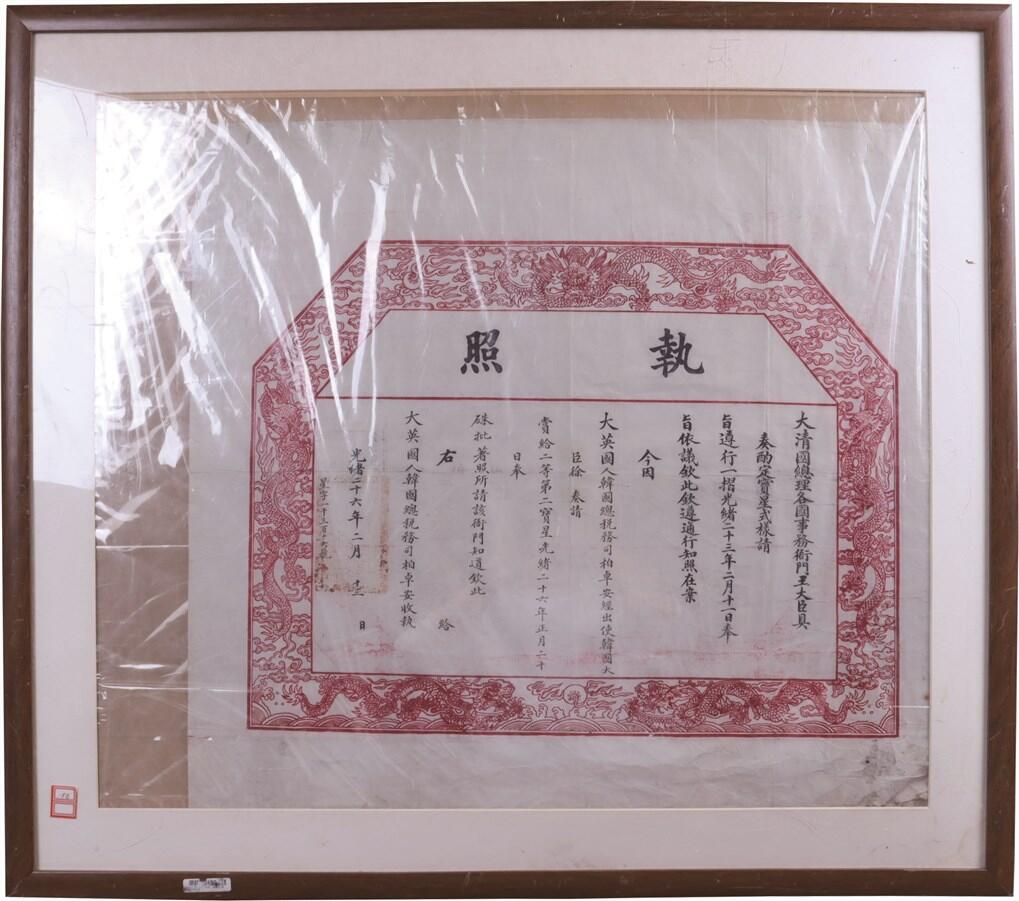 執照
大清國總理各國事務衙門王大臣具
奏酌定寶星式樣請
旨遵行一摺光緒二十三年二月十一日奉
旨依議欽此欽遵通行知照在案
今因
大英國人韓國總稅務司柏卓安經出使韓國大
臣徐 奏請
賞給二等第二寶星光緒二十六年正月二十
日奉
硃批著照所請該衙門知道欽此
右 給
大英國人韓國總稅務司柏卓安收執
光緒二十六年二月 日